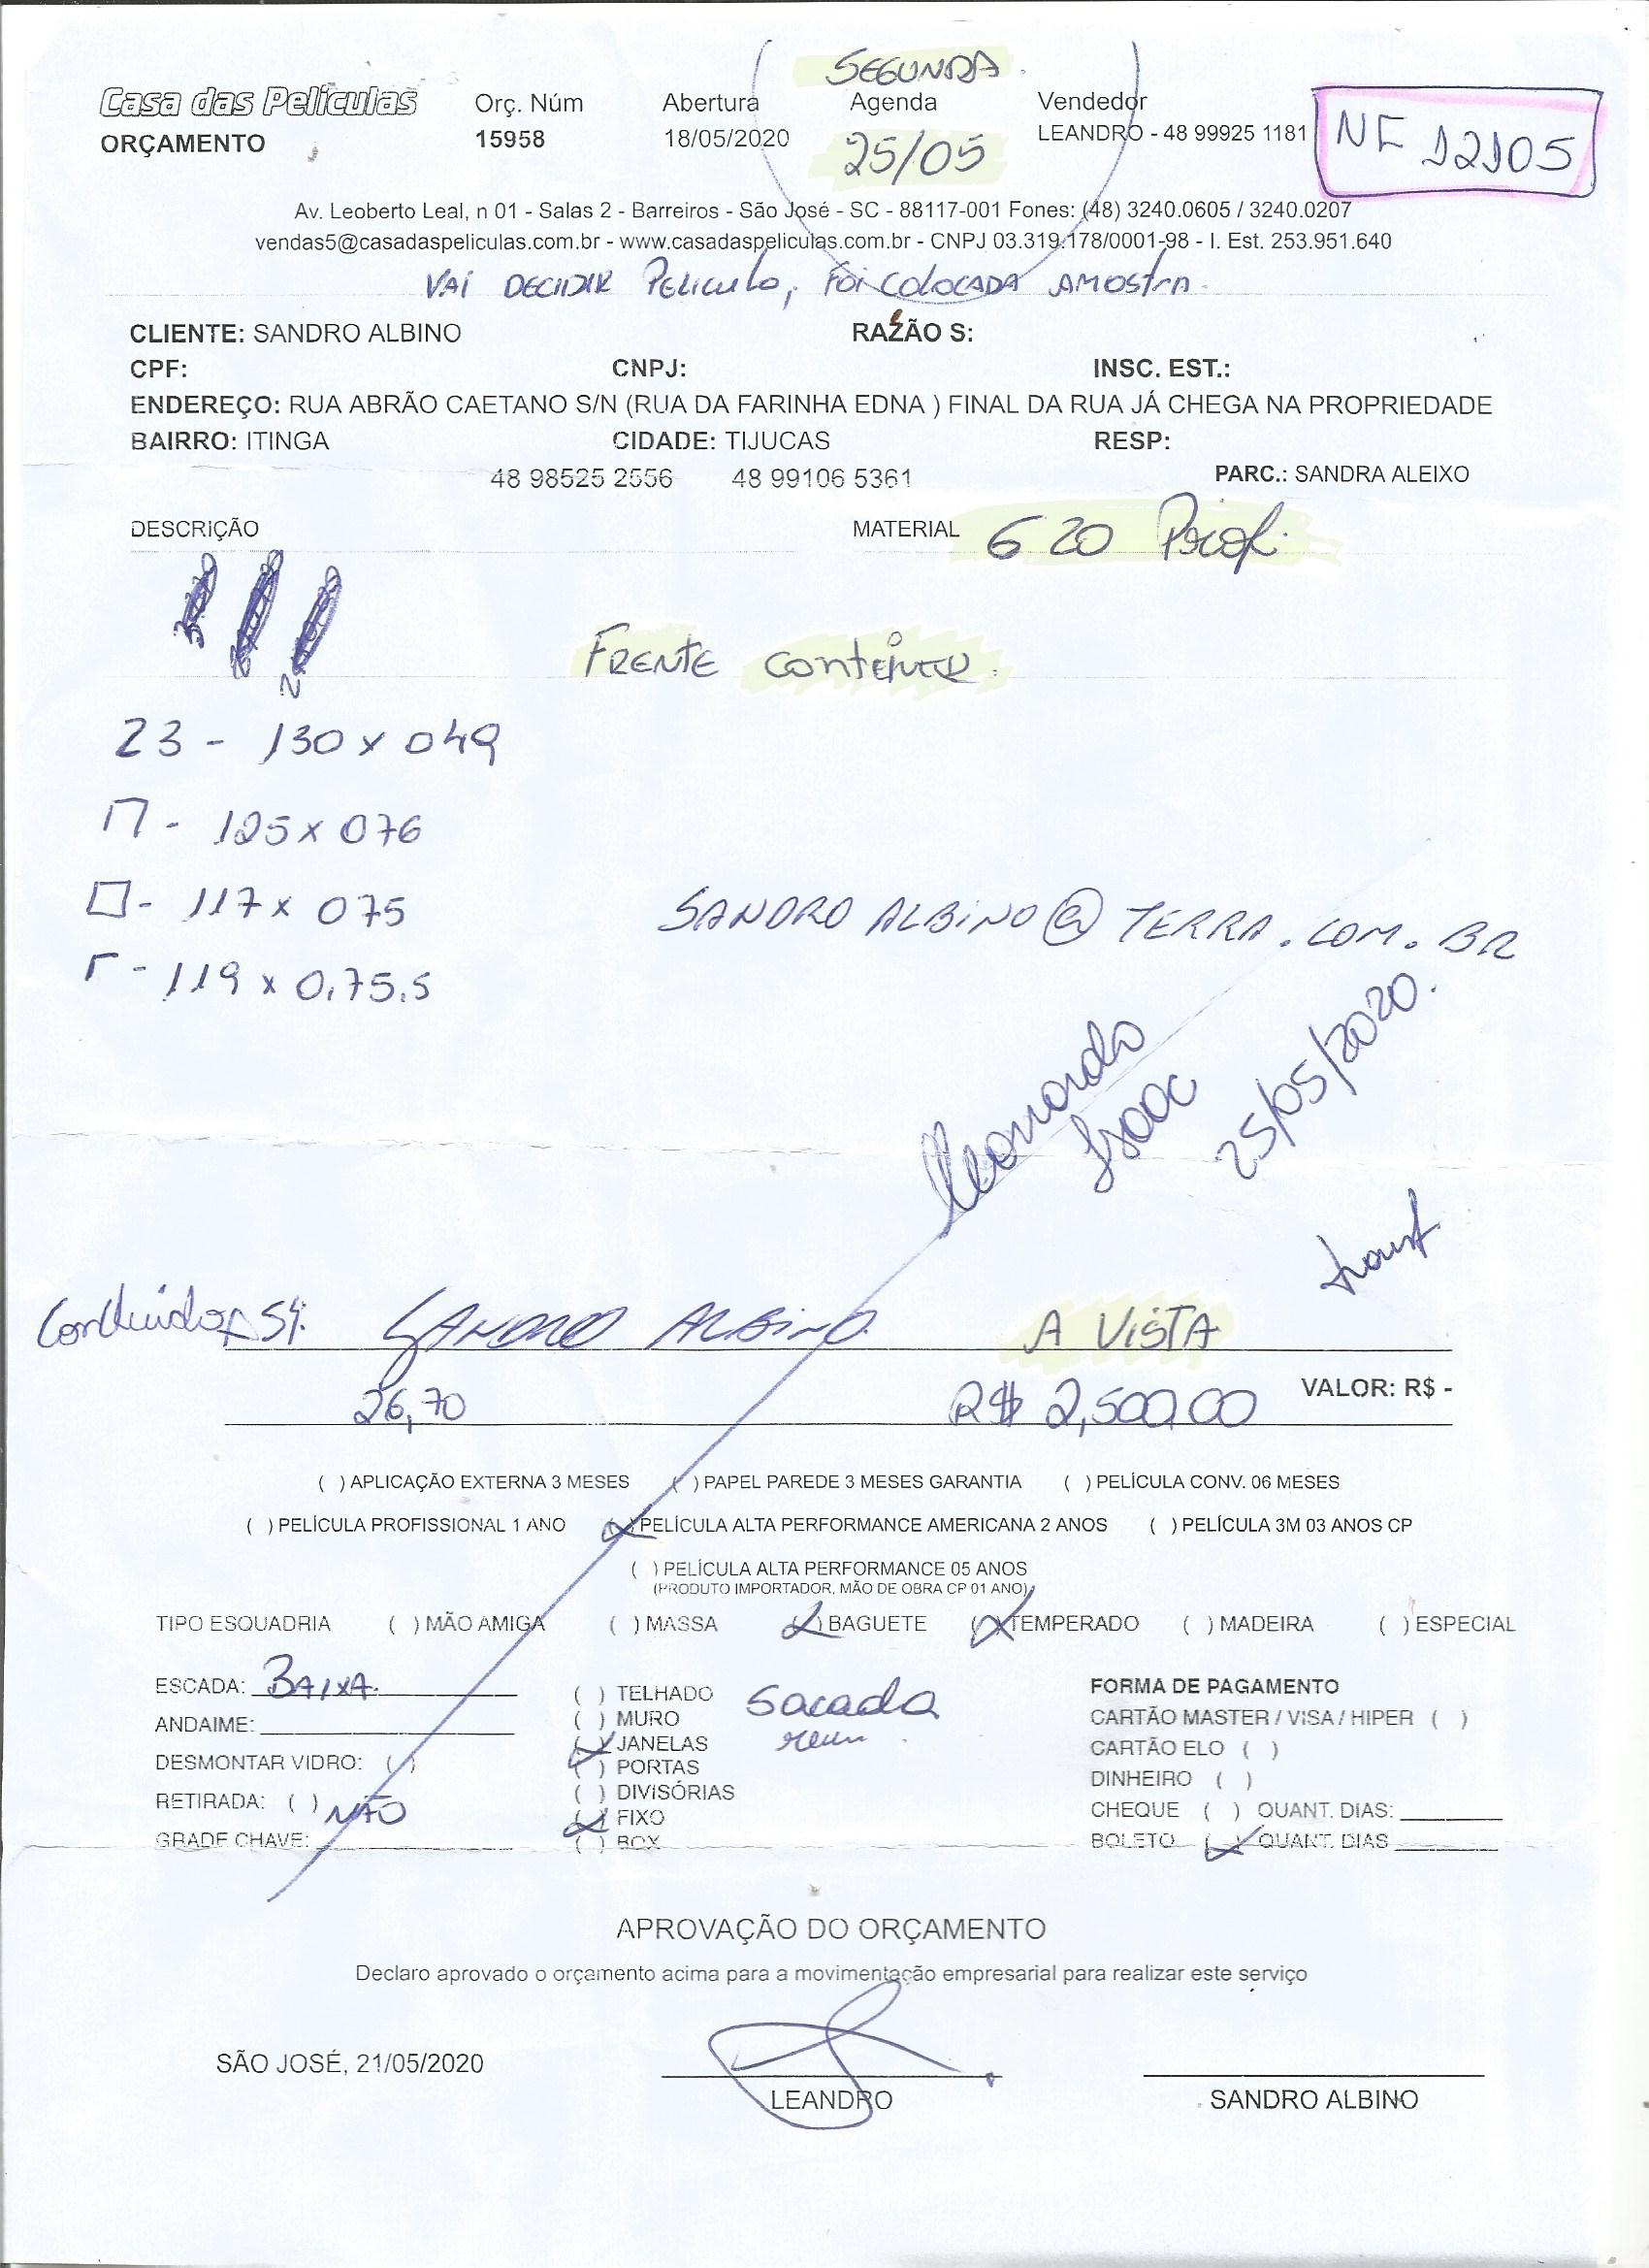 SEGUNDA.
Casa das Películas Orç. Núm Abertura Agenda Vendedor
ORÇAMENTO 15958 18/05/2020 25/05 LEANDRO - 48 99925 1181 NF 12105
Av. Leoberto Leal, n 01 - Salas 2 - Barreiros - São José - SC - 88117-001 Fones: (48) 3240.0605 / 3240.0207
vendas5@casadaspeliculas.com.br - www.casadaspeliculas.com.br - CNPJ 03.319.178/0001-98 - I. Est. 253.951.640
VAI DECIDIR PELICULA, FOI COLOCADA AMOSTRA.
CLIENTE: SANDRO ALBINO RAZÃO S:
CPF: CNPJ: INSC. EST.:
ENDEREÇO: RUA ABRÃO CAETANO S/N (RUA DA FARINHA EDNA ) FINAL DA RUA JÁ CHEGA NA PROPRIEDADE
BAIRRO: ITINGA CIDADE: TIJUCAS RESP:
48 98525 2556 48 99106 5361 PARC.: SANDRA ALEIXO
DESCRIÇÃO MATERIAL G 20 Prof.
FRENTE CONTEINER.
23 - 130 x 049
- 125 x 076
- 117 x 075
- 119 x 0,75,5
SANDRO ALBINO@TERRA.COM.BR
Leonardo
Isaac
25/05/2020.
Concluído SANDRO ALBINO A VISTA
26,70 R$ 2,500,00 VALOR: R$ -
( ) APLICAÇÃO EXTERNA 3 MESES ( ) PAPEL PAREDE 3 MESES GARANTIA ( ) PELÍCULA CONV. 06 MESES
( ) PELÍCULA PROFISSIONAL 1 ANO (X) PELÍCULA ALTA PERFORMANCE AMERICANA 2 ANOS ( ) PELÍCULA 3M 03 ANOS CP
( ) PELÍCULA ALTA PERFORMANCE 05 ANOS
(PRODUTO IMPORTADOR, MÃO DE OBRA CP 01 ANO)
TIPO ESQUADRIA ( ) MÃO AMIGA ( ) MASSA (X) BAGUETE (X) TEMPERADO ( ) MADEIRA ( ) ESPECIAL
ESCADA: BAIXA.
ANDAIME:
DESMONTAR VIDRO: ( )
RETIRADA: ( ) NÃO
GRADE CHAVE:
( ) TELHADO Sacada
( ) MURO
(X) JANELAS
( ) PORTAS
( ) DIVISÓRIAS
(X) FIXO
( ) BOX
FORMA DE PAGAMENTO
CARTÃO MASTER / VISA / HIPER ( )
CARTÃO ELO ( )
DINHEIRO ( )
CHEQUE ( ) QUANT. DIAS:
BOLETO (X) QUANT. DIAS
APROVAÇÃO DO ORÇAMENTO
Declaro aprovado o orçamento acima para a movimentação empresarial para realizar este serviço
SÃO JOSÉ, 21/05/2020
LEANDRO SANDRO ALBINO